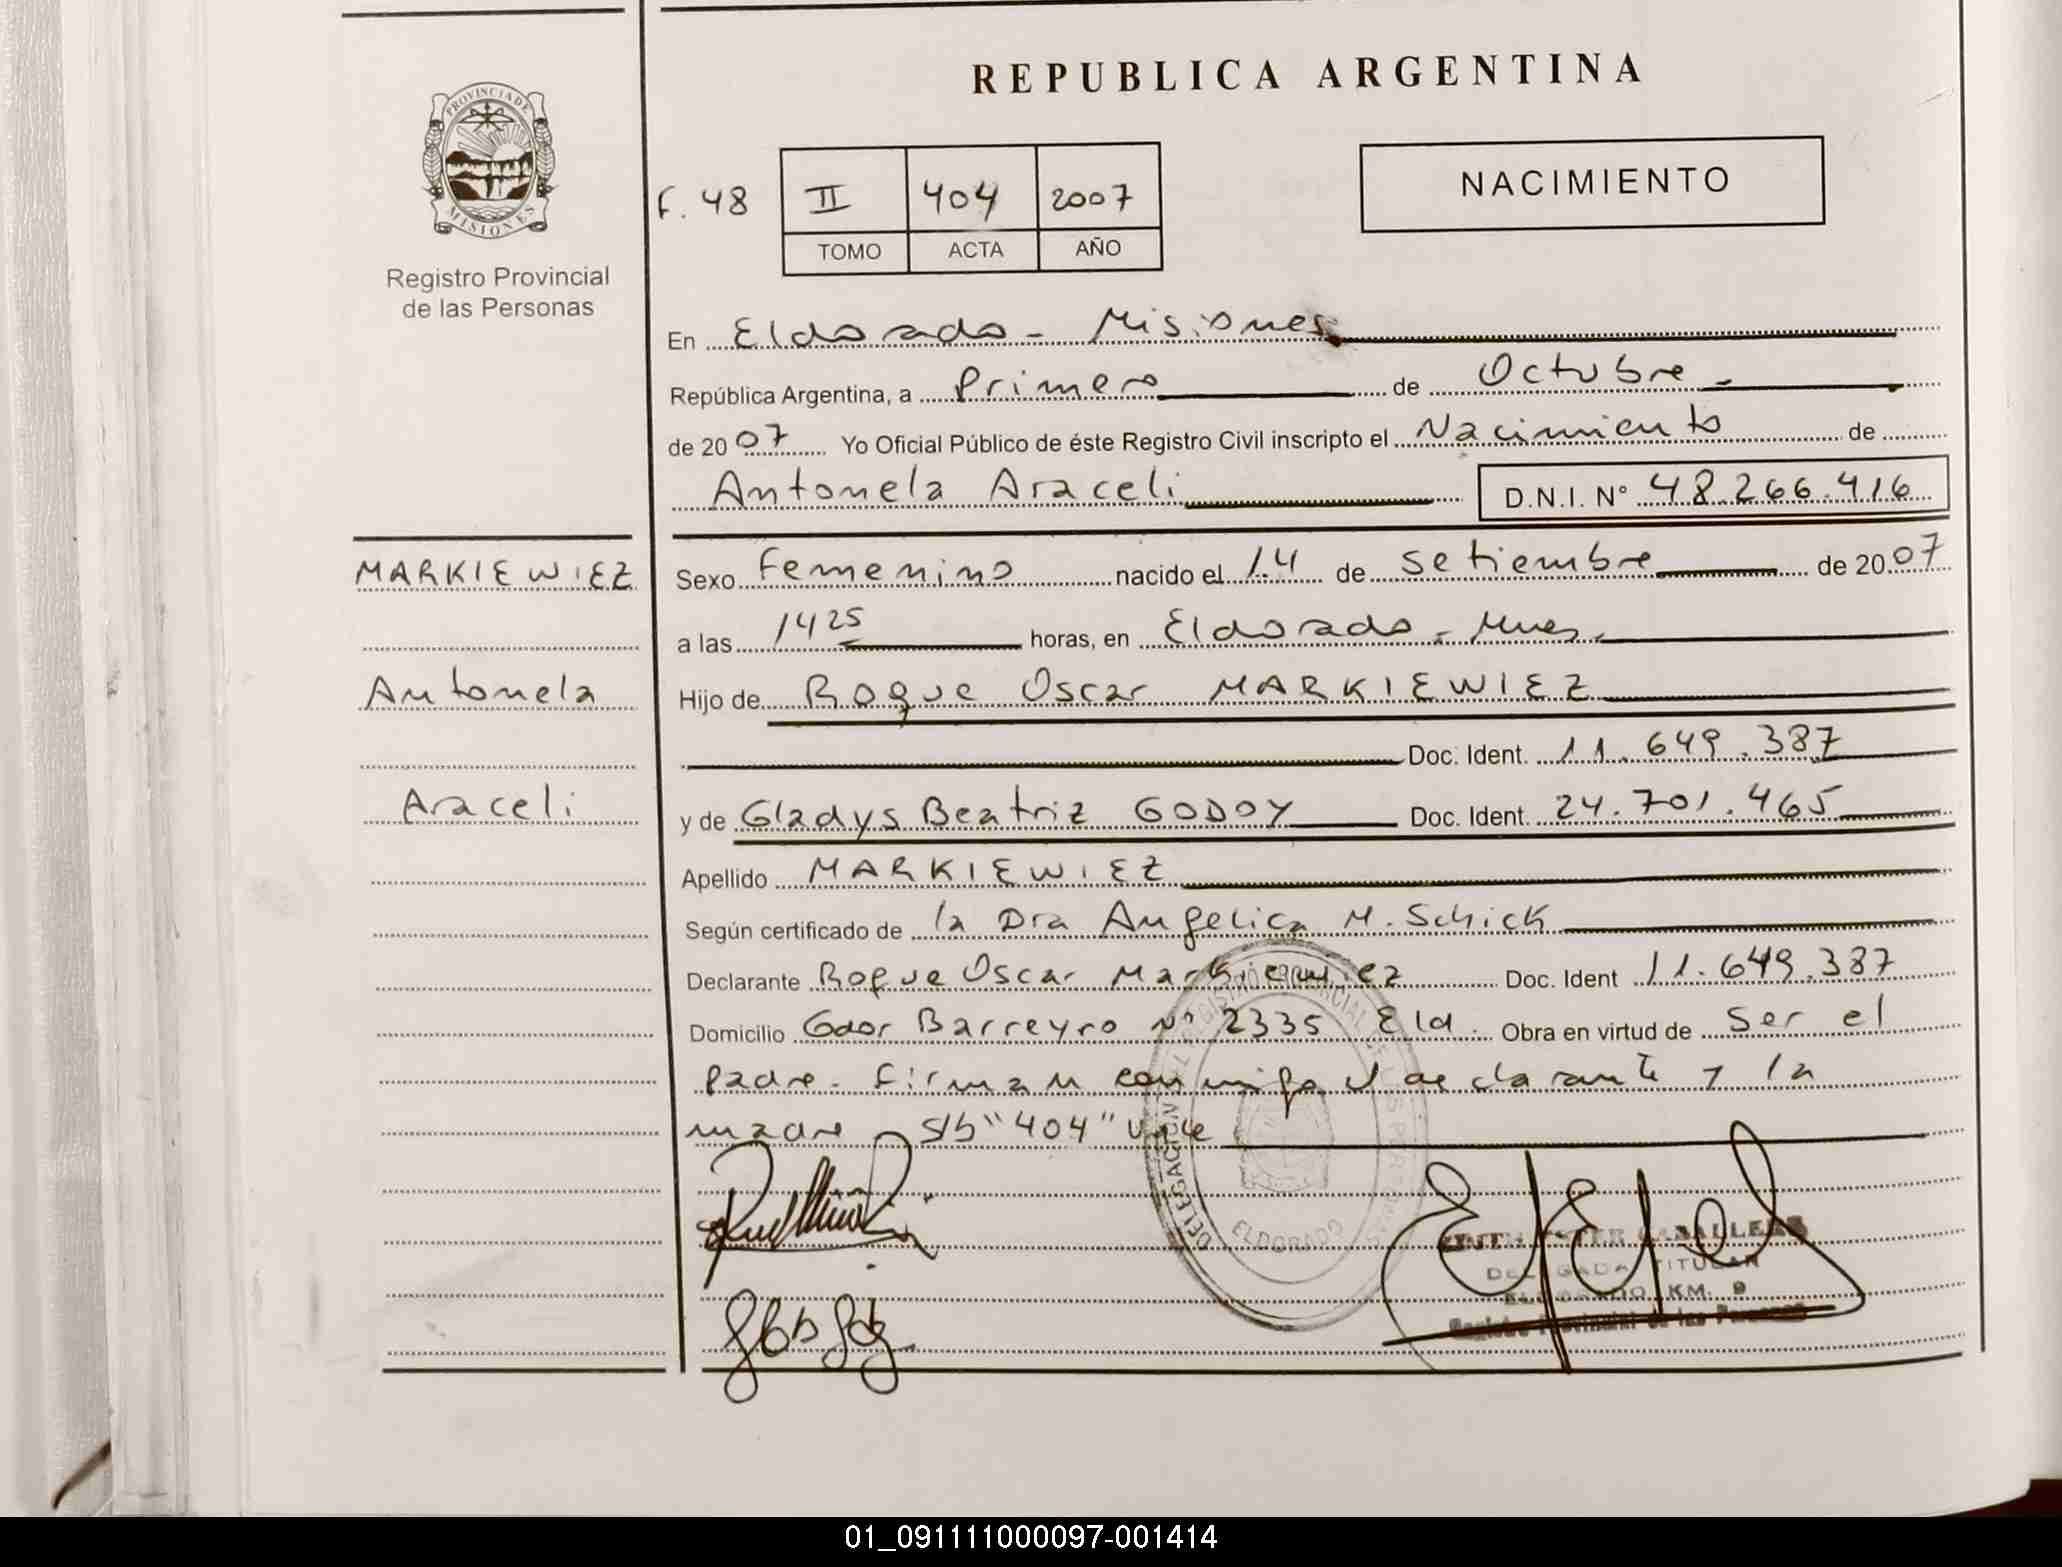 REPUBLICA ARGENTINA
PROVINCIA DE
MISIONES
Registro Provincial
de las Personas
F. 48
II 404 2007
TOMO ACTA AÑO
NACIMIENTO
En Eldorado - Misiones
República Argentina, a Primero de Octubre -
de 2007 Yo Oficial Público de éste Registro Civil inscripto el Nacimiento de
Antonela Araceli D.N.I. N° 48.266.416
MARKIEWIEZ
Antonela
Araceli
Sexo Femenino nacido el 14 de setiembre de 2007
a las 1425 horas, en Eldorado - Mnes.
Hijo de Roque Oscar MARKIEWIEZ
Doc. Ident. 11.649.387
y de Gladys Beatriz GODOY Doc. Ident. 24.701.465
Apellido MARKIEWIEZ
Según certificado de la Dra Angelica M. Schick
Declarante Roque Oscar Markiewiez Doc. Ident 11.649.387
Domicilio Gdor Barreyro N° 2335 Eld. Obra en virtud de Ser el
padre - Firman conmigo el declarante y la
madre s/b "404" Vale
ELDORADO
CABALLERO
DELEGADA TITULAR
ELDORADO KM. 9
Registro Provincial de las Personas
01_091111000097-001414